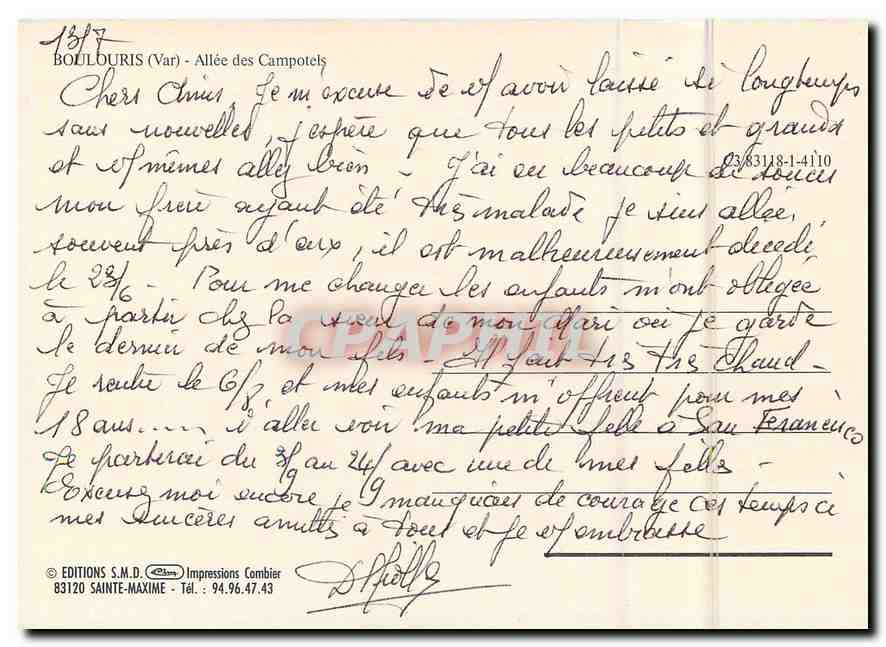 13/7
BOULOURIS (Var) - Allée des Campotels
Chers Amis, Je m'excuse de v/ avoir laissé si longtemps
sans nouvelles, j'espère que tous les petits et grands
et v/ mêmes allez bien - J'ai eu beaucoup de soucis
C3 83118-1-4110
mon frère ayant été très malade je suis allée,
souvent près d'eux, il est malheureusement décédé
le 23/6 - Pour me changer les enfants m'ont obligée
à partir chez la sœur de mon Mari où je garde
CPAPHIL
le dernier de mon fils - Il fait très très chaud -
Je rentre le 6/8 et mes enfants m'offrent pour mes
18 ans..... d'aller voir ma petite fille à San Francisco
Je partirai du 3/9 au 24/9 avec une de mes filles -
Excusez moi encore je manquais de courage ces temps ci
mes sincères amitiés à tous et je v/ embrasse
© EDITIONS S.M.D. Cim Impressions Combier
83120 SAINTE-MAXIME - Tél. : 94.96.47.43